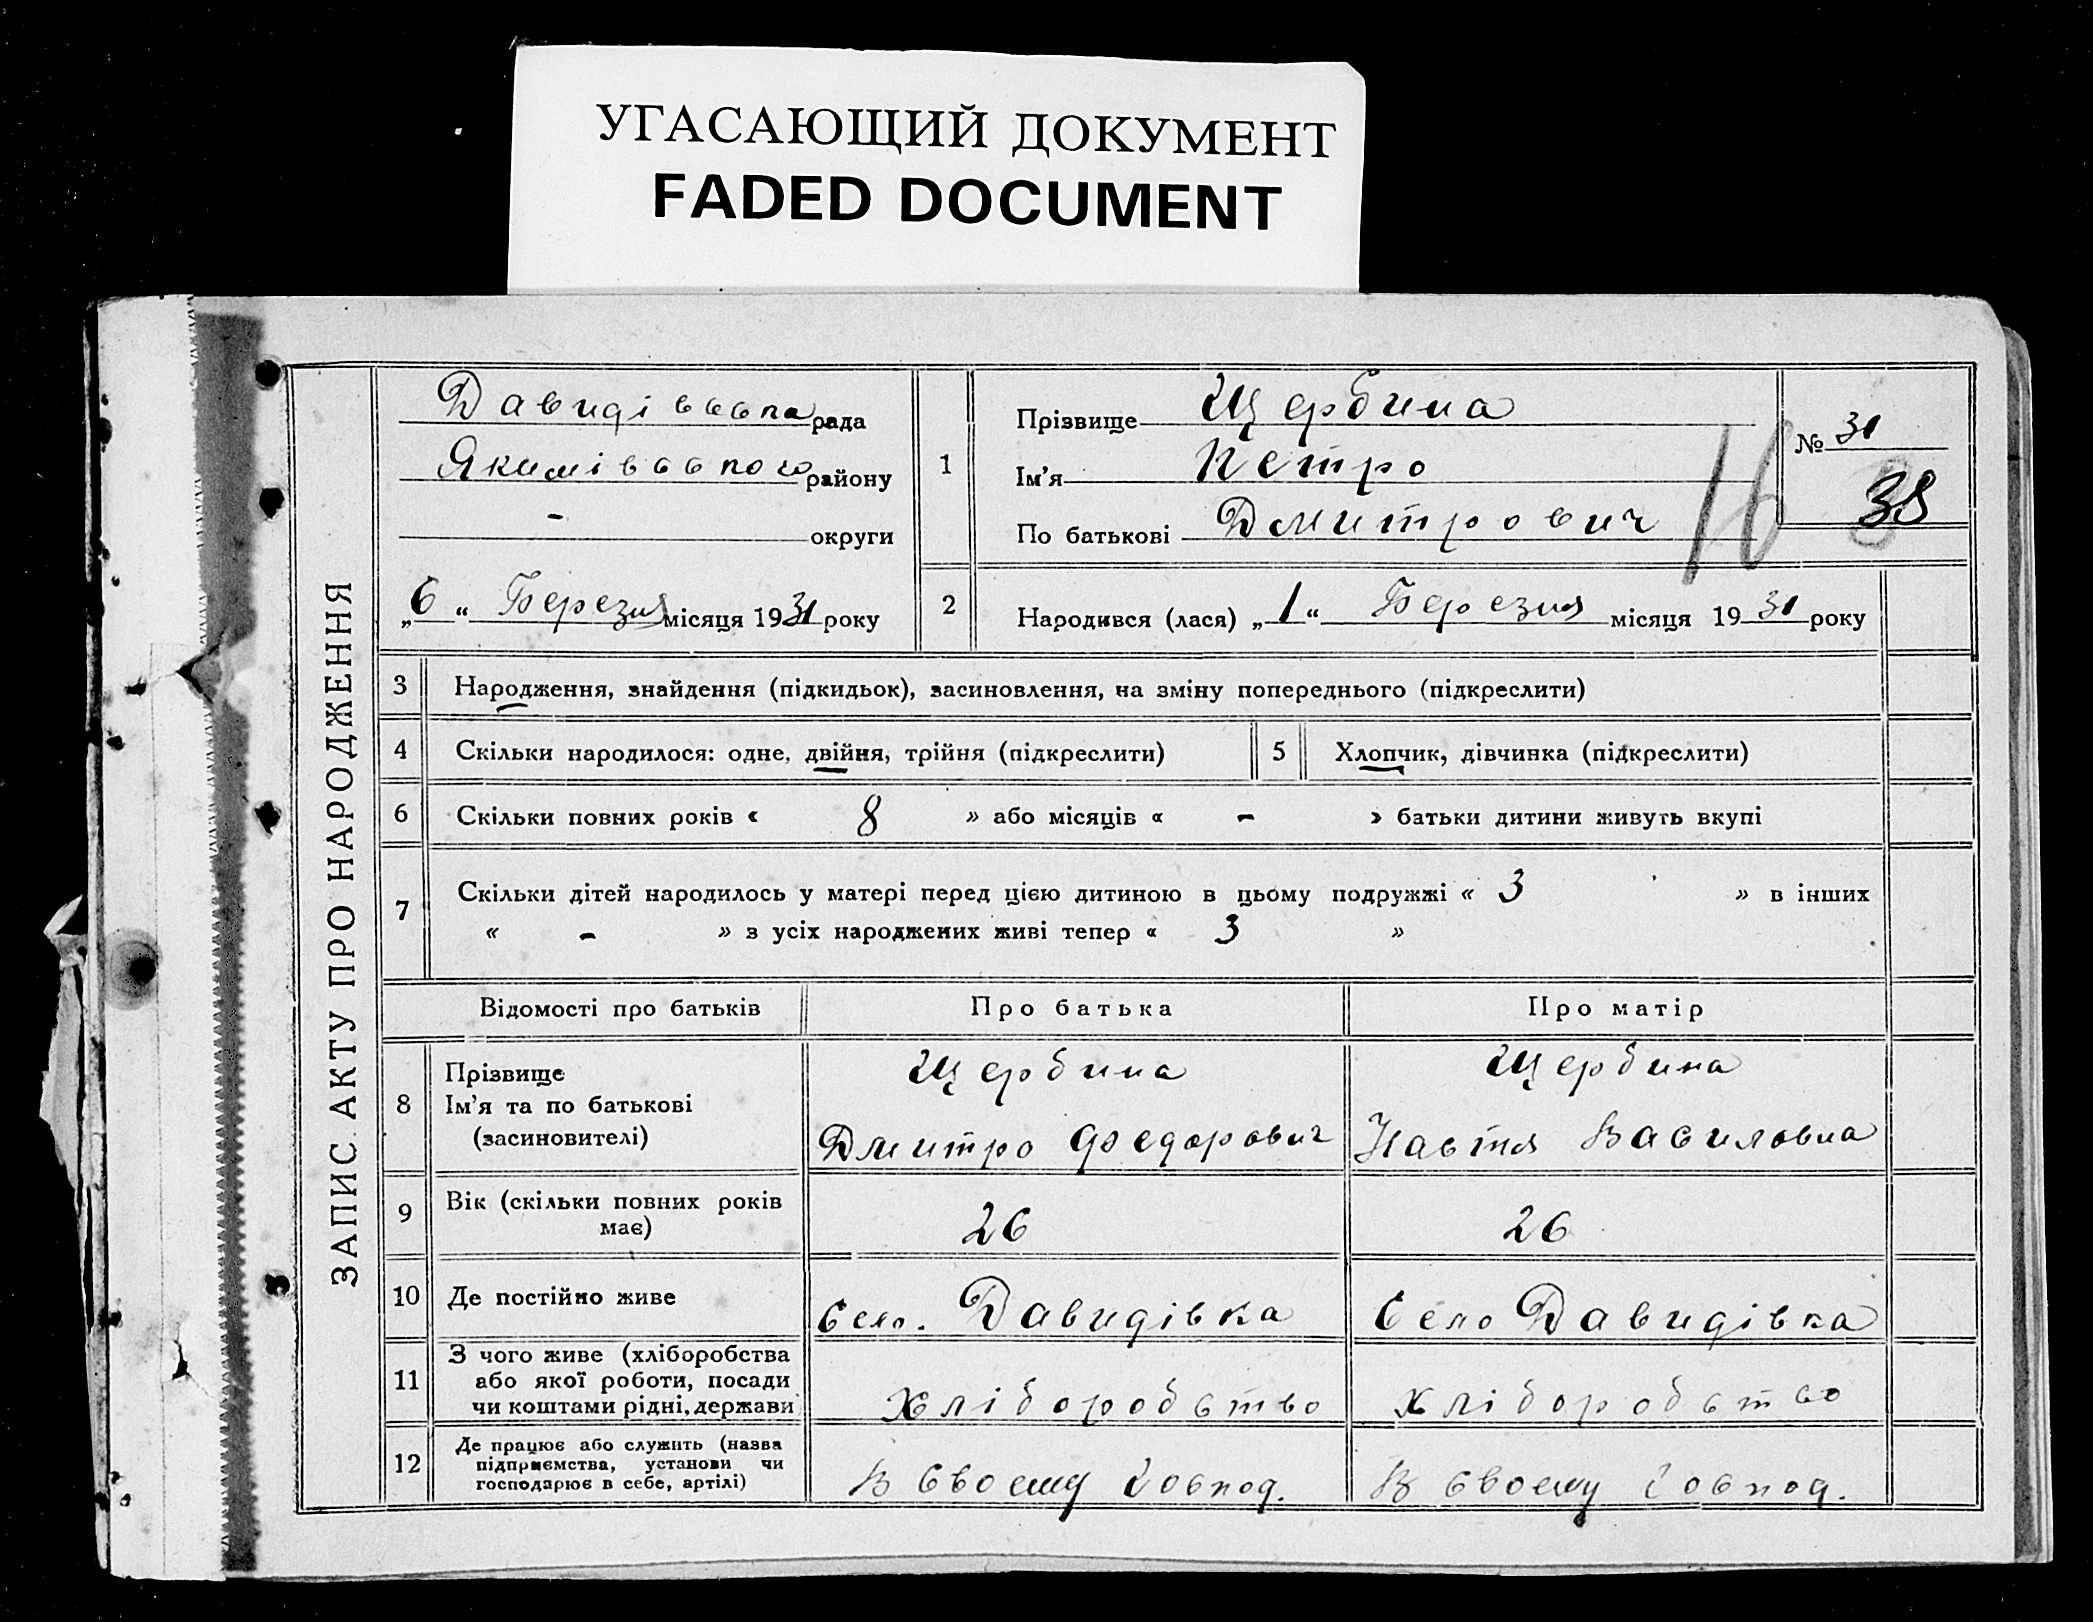 УГАСАЮЩИЙ ДОКУМЕНТ
FADED DOCUMENT
ЗАПИС АКТУ ПРО НАРОДЖЕННЯ
Давидівська рада
Якимівського району
- округи
„6“ Березня місяця 1931 року
1
Прізвище Щербина
Ім'я Петро
По батькові Дмитрович
16
№ 31
38
2
Народився (лася) „1“ Березня місяця 1931 року
3 Народження, знайдення (підкидьок), засиновлення, на зміну попереднього (підкреслити)
4 Скільки народилося: одне, двійня, трійня (підкреслити)
5 Хлопчик, дівчинка (підкреслити)
6 Скільки повних років « 8 » або місяців « - » батьки дитини живуть вкупі
7 Скільки дітей народилось у матері перед цією дитиною в цьому подружжі « 3 » в інших
« - » з усіх народжених живі тепер « 3 »
Відомості про батьків Про батька Про матір
8
Прізвище
Ім'я та по батькові
(засиновителі)
Щербина
Дмитро Федорович
Щербина
Настя Василовна
9
Вік (скільки повних років
має)
26
26
10 Де постійно живе
Село. Давидівка
Село Давидівка
11
З чого живе (хліборобства
або якої роботи, посади
чи коштами рідні, держави
хліборобство
хліборобство
12
Де працює або служить (назва
підприємства, установи чи
господарює в себе, артілі)
В своему господ.
В своему господ.